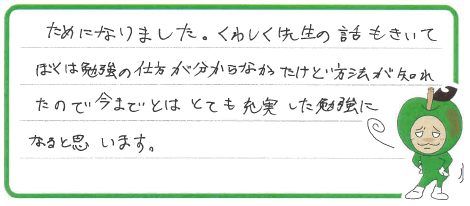 ためになりました。くわしく先生の話もきいて
ぼくは勉強の仕方が分からなかったけど方法が知れ
たので今までとはとても充実した勉強に
なると思います。